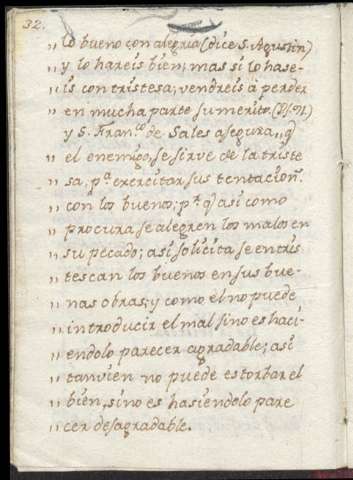 32.
,, lo bueno con alegria (dice S. Agustin)
,, y lo hareis bien; mas si lo hase-
,, is con tristesa; vendreis à perder
,, en mucha parte su merito.
,, y S. Fran.co de Sales asegura,, q.
,, el enemigo, se sirve de la triste
,, sa, p.a exercitar sus tentacion.s
,, con los buenos; p.q. asi como
,, procura se alegren los malos en
,, su pecado; asi solicita se entris
,, tescan los buenos en sus bue-
,, nas obras; y como el no puede
,, introducir el mal sino es haci-
,, endolo parecer agradable; asi
,, tanvien no puede estorbar el
,, bien, sino es hasiendolo pare
,, cer desagradable.